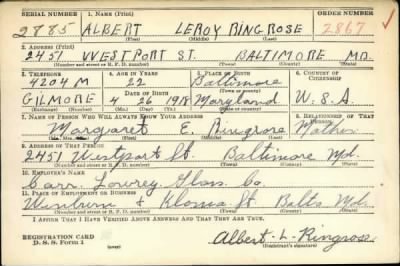 SERIAL NUMBER 1. NAME (Print) ORDER NUMBER
2885 ALBERT LEROY RINGROSE 2867
(First) (Middle) (Last)
2. ADDRESS (Print)
2451 WESTPORT ST. BALTIMORE MD.
(Number and street or R. F. D. number) (Town) (County) (State)
3. TELEPHONE 4. AGE IN YEARS 5. PLACE OF BIRTH 6. COUNTRY OF CITIZENSHIP
4204M 22 Baltimore
DATE OF BIRTH (Town or county)
GILMORE 4 26 1918 Maryland U.S.A.
(Exchange) (Number) (Mo.) (Day) (Yr.) (State or country)
7. NAME OF PERSON WHO WILL ALWAYS KNOW YOUR ADDRESS 8. RELATIONSHIP OF THAT PERSON
Margaret E. Ringrose Mother
(Mr., Mrs., Miss) (First) (Middle) (Last)
9. ADDRESS OF THAT PERSON
2451 Westport St. Baltimore Md.
(Number and street or R. F. D. number) (Town) (County) (State)
10. EMPLOYER'S NAME
Carr Lowrey Glass Co.
11. PLACE OF EMPLOYMENT OR BUSINESS
& St. Balto Md.
(Number and street or R. F. D. number) (Town) (County) (State)
I AFFIRM THAT I HAVE VERIFIED ABOVE ANSWERS AND THAT THEY ARE TRUE.
REGISTRATION CARD
D. S. S. Form 1
Albert L. Ringrose
(Registrant's signature)